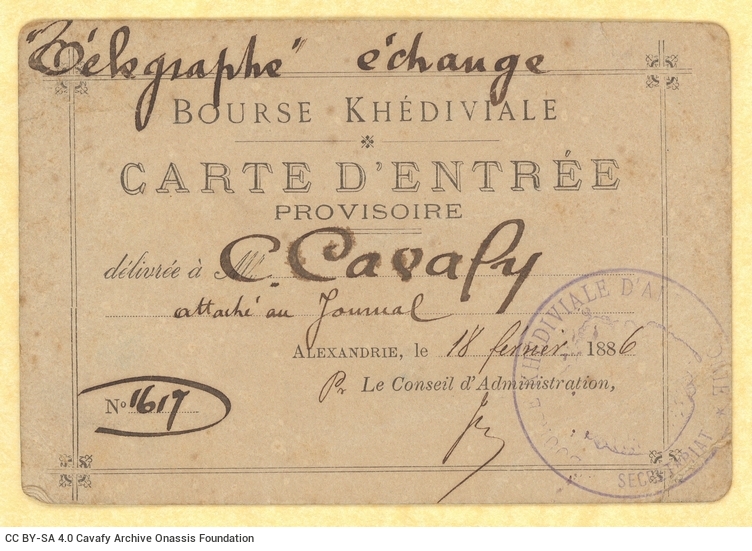 "Télégraphe" échange
BOURSE KHÉDIVIALE
CARTE D'ENTRÉE
PROVISOIRE
délivrée à Mr. C. Cavafy
attaché au Journal
ALEXANDRIE, le 18 fevrier 1886
Pr Le Conseil d'Administration,
No 1617
KHÉDIVIALE D'A
SECRETARIAT
CC BY-SA 4.0 Cavafy Archive Onassis Foundation